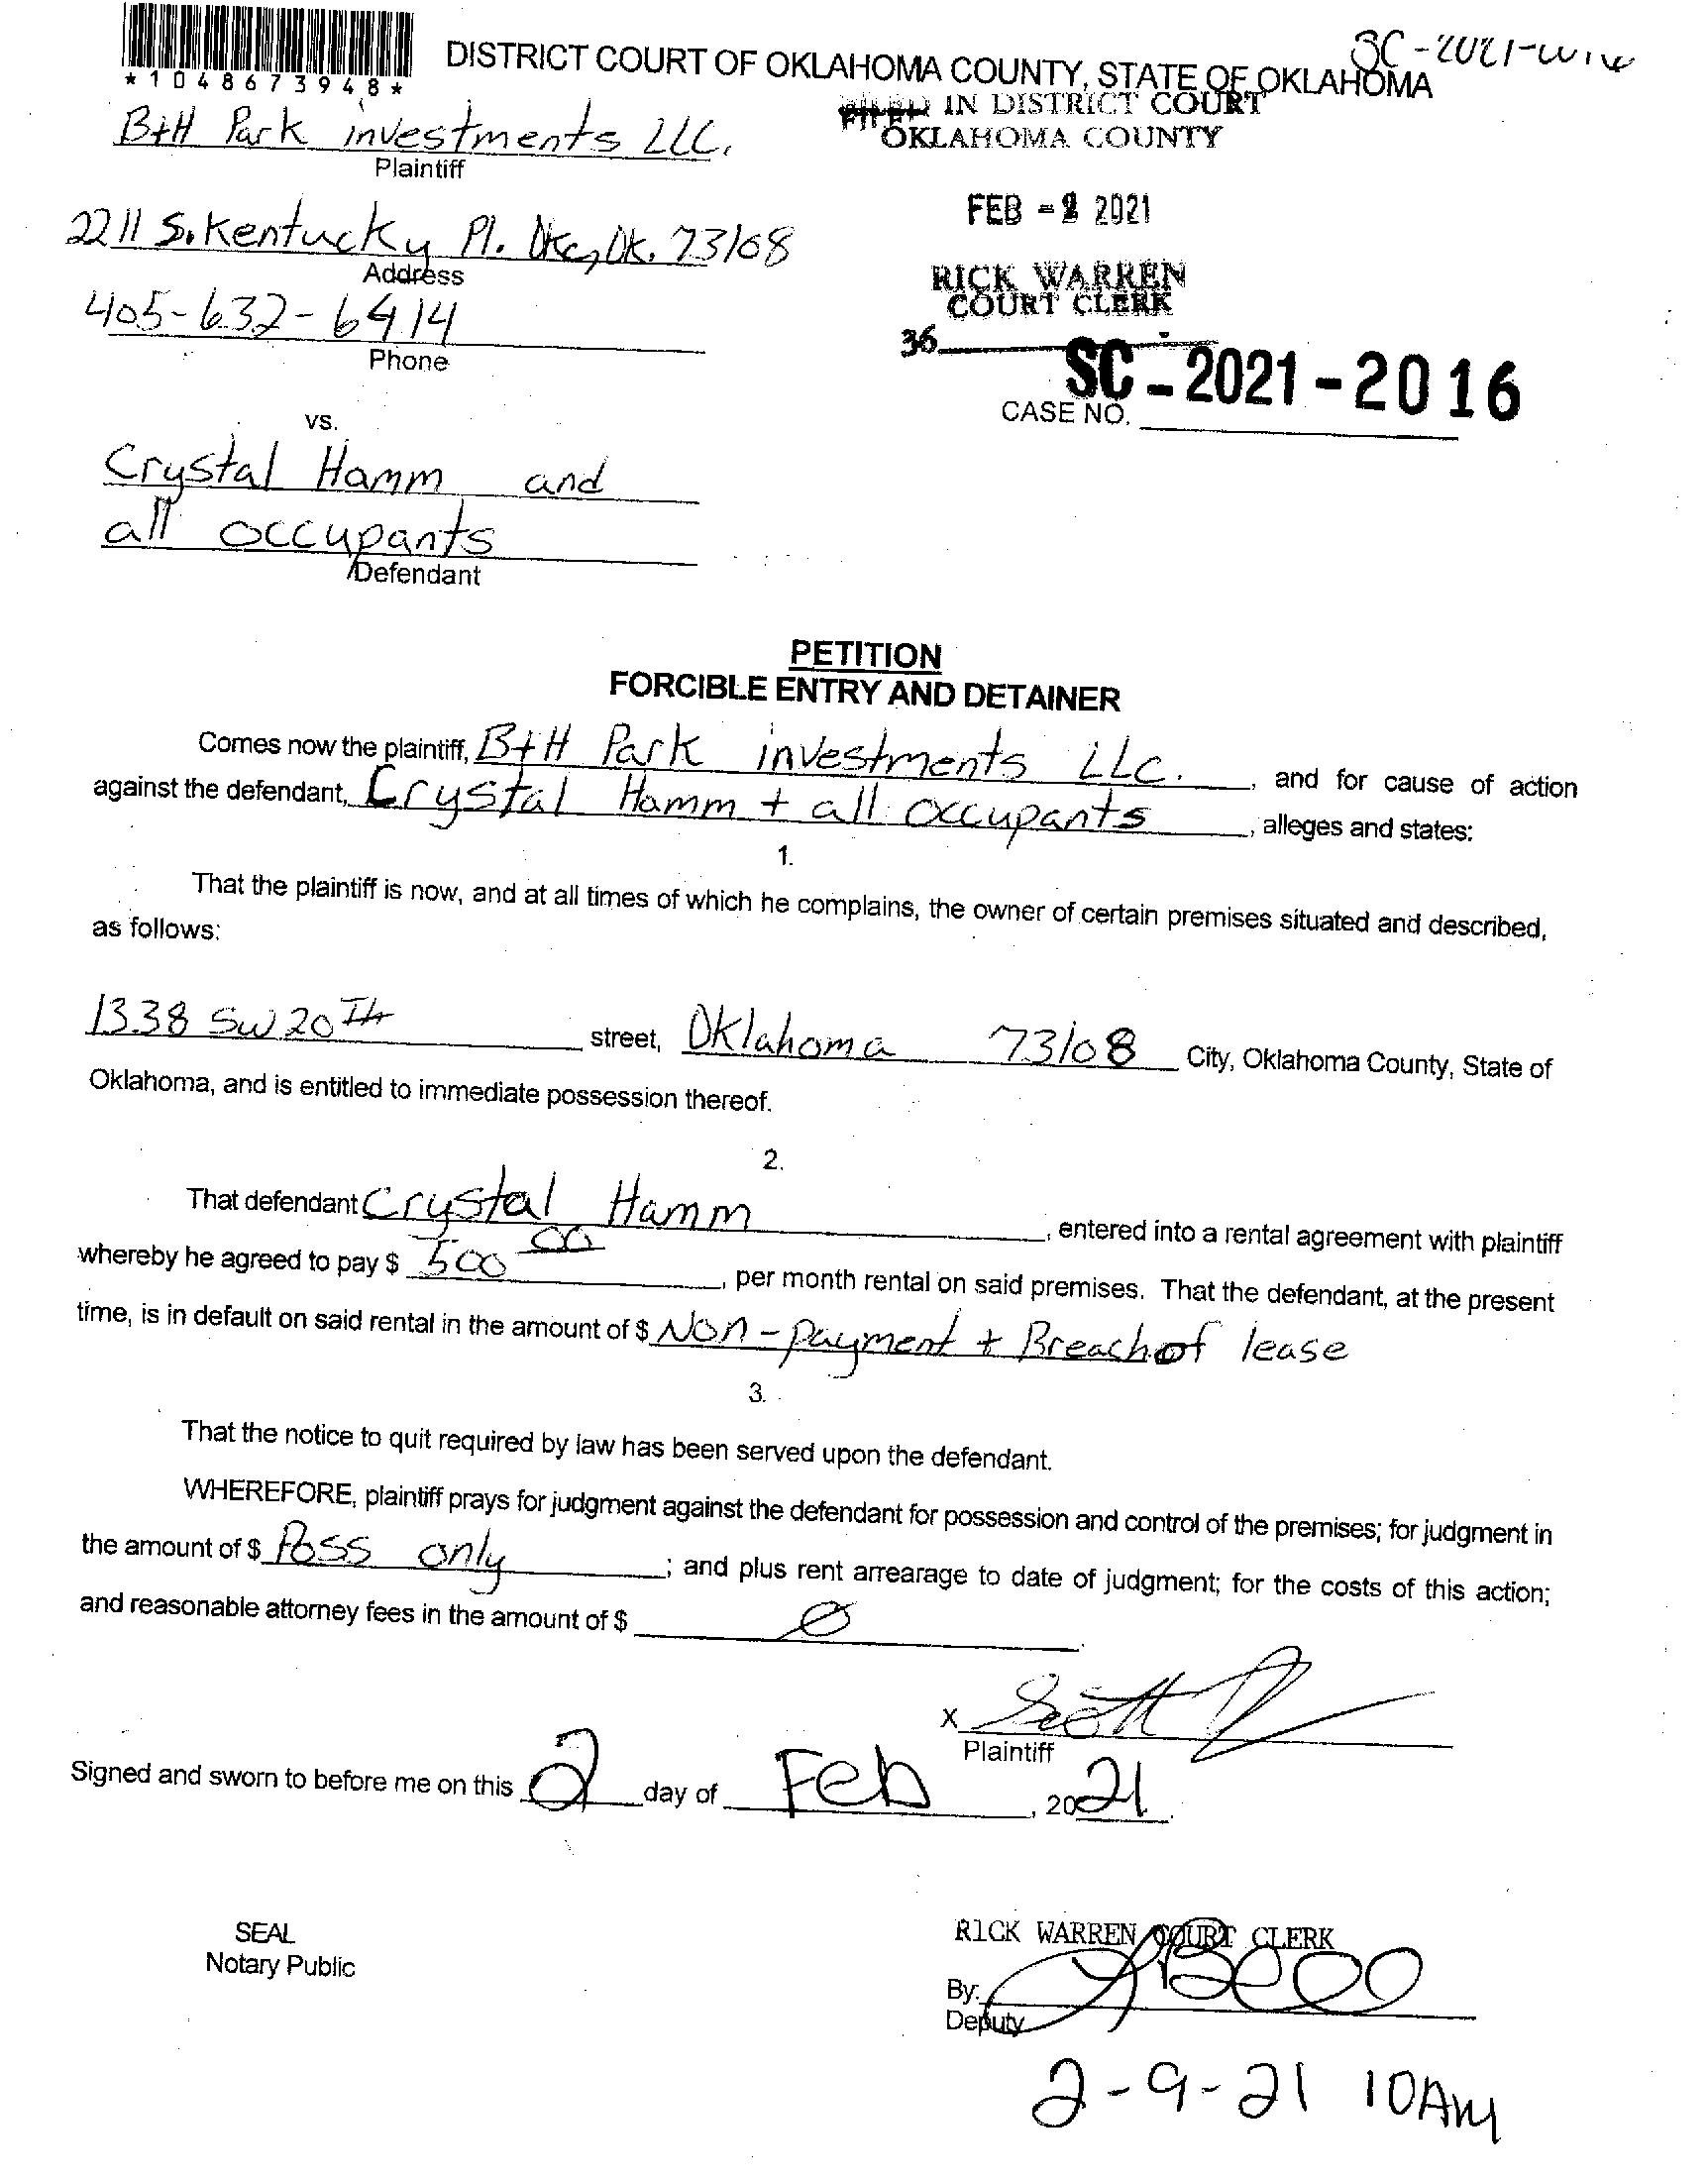 SC-2021-
*1048673948*
DISTRICT COURT OF OKLAHOMA COUNTY, STATE OF OKLAHOMA
FILED IN DISTRICT COURT
OKLAHOMA COUNTY
B+H Park investments LLC.
Plaintiff
FEB -2 2021
2211 S. Kentucky Pl. Okc, Ok. 73108
Address
RICK WARREN
COURT CLERK
405-632-6414
Phone
36
SC-2021-2016
CASE NO.
vs.
Crystal Hamm and
all occupants
Defendant
PETITION
FORCIBLE ENTRY AND DETAINER
Comes now the plaintiff, B+H Park investments LLC. , and for cause of action
against the defendant, Crystal Hamm + all occupants , alleges and states:
1.
That the plaintiff is now, and at all times of which he complains, the owner of certain premises situated and described,
as follows:
1338 SW 20th street, Oklahoma 73108 City, Oklahoma County, State of
Oklahoma, and is entitled to immediate possession thereof.
2.
That defendant Crystal Hamm , entered into a rental agreement with plaintiff
whereby he agreed to pay $ 500 00 , per month rental on said premises. That the defendant, at the present
time, is in default on said rental in the amount of $ Non-payment + Breach of lease
3.
That the notice to quit required by law has been served upon the defendant.
WHEREFORE, plaintiff prays for judgment against the defendant for possession and control of the premises; for judgment in
the amount of $ Poss only ; and plus rent arrearage to date of judgment; for the costs of this action;
and reasonable attorney fees in the amount of $ Ø
X Scott
Plaintiff
Signed and sworn to before me on this 2 day of Feb , 2021.
SEAL
Notary Public
RICK WARREN COURT CLERK
By:
Deputy
2-9-21 10AM